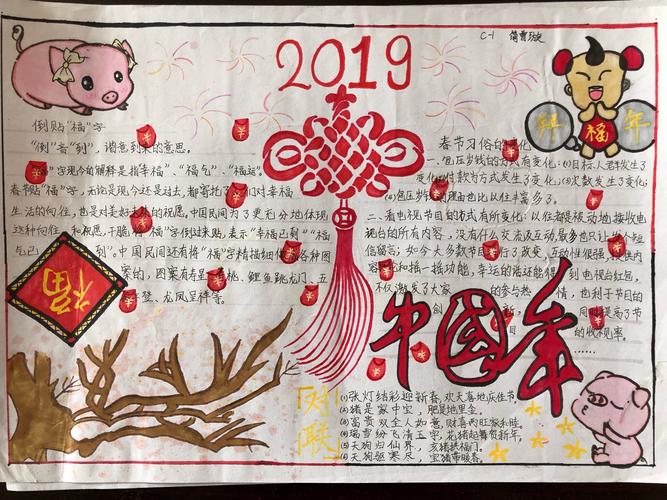 2019
C-1
倒贴"福"字
"倒""到",谐音到来的意思。
"福"字现今的解释是指幸福"、"福气"、"福运"。
春节贴"福"字,无论是现今还是过去,都寄托了人们对幸福
生活的向往,也是对美好未来的祝愿,中国民间为了更充分地体现
这种向往和祝愿,干脆将"福"字倒过来贴,表示"幸福已到""福
气已到"。中国民间还有将"福"字精描细作成各种图
案的,图案有寿星、寿桃、鲤鱼跳龙门、五
登、龙凤呈祥等。
福
拜 福 年
春节习俗的变化
一、包压岁钱的方式有变化:(1)目标人群发生了
变化;付款方式发生了变化;(3)次数发生了变化;
(4)包压岁钱的理由也比以往丰富多了。
二、看电视节目的方式有所变化 以往都是被动地接收电
视台的所有内容,没有什么交流及互动,最多也只让发个短
信留言;如今大多数节目进行了改变,互动性很强,
内容和摇一摇功能,幸运的话还能得到电视台红包,
不仅激发了大家的参与热情,也利于节目的
创 同时提高了节
目的收视率。
……
中国年
对联
(1)张灯结彩迎新春,欢天喜地庆佳节。
(2)猪是家中宝,肥是地里金。
(3)富贵双全人如意,财喜两旺家和睦。
(4)瑞雪纷飞清玉宇,花猪起舞贺新年。
(5)天狗归仙界,亥猪拱福门。
(6)天狗驱寒尽,宝猪带暖春。